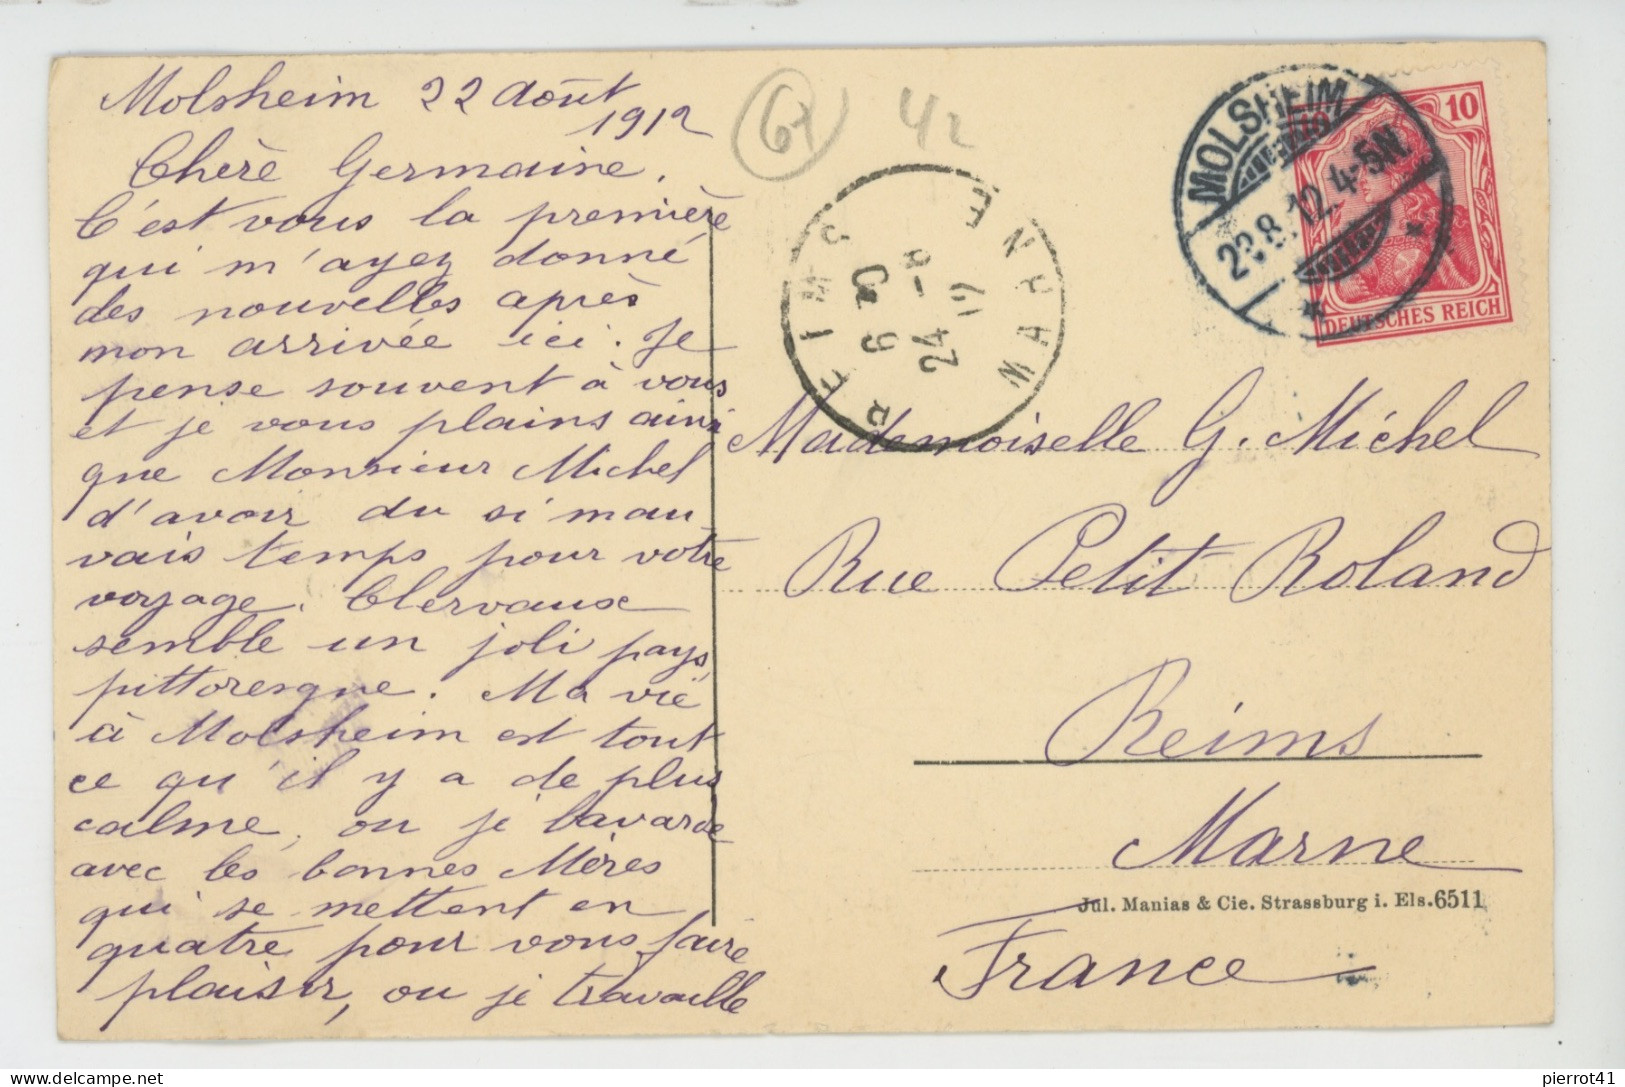 Molsheim 22 août
1912
Chère Germaine.
C'est vous la première
qui m'ayez donné
des nouvelles après
mon arrivée ici. Je
pense souvent à vous
et je vous plains ainsi
que Monsieur Michel
d'avoir du si mau
vais temps pour votre
voyage. Clervaux
semble un joli pays
pittoresque. Ma vie
à Molsheim est tout
ce qu'il y a de plus
calme, ou je bavarde
avec les bonnes Mères
qui se mettent en
quatre pour vous faire
plaisir, ou je travaille
67
42
REIMS
MARNE
6 30
24 - 8
12
MOLSHEIM
4-5N.
10
DEUTSCHES REICH
Mademoiselle G. Michel
Rue Petit Roland
Reims
Marne
Jul. Manias & Cie. Strassburg i. Els. 6511
France
pierrot41